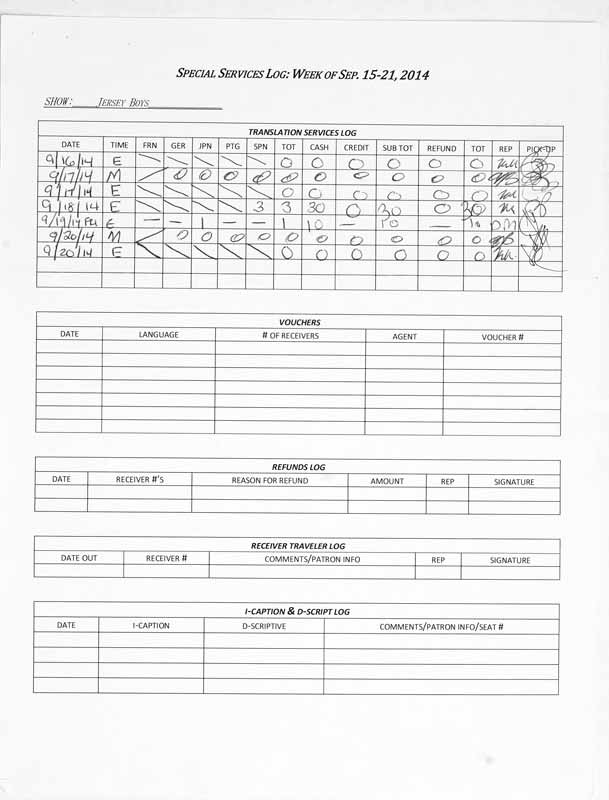 SPECIAL SERVICES LOG: WEEK OF SEP. 15-21, 2014
SHOW: JERSEY BOYS
TRANSLATION SERVICES LOG
DATE TIME FRN GER JPN PTG SPN TOT CASH CREDIT SUB TOT REFUND TOT REP PICK-UP
9/16/14 E \ \ \ \ \ 0 0 0 0 0 0
9/17/14 M / 0 0 0 0 0 0 0 0 0 0
9/17/14 E \ \ \ \ \ 0 0 0 0 0 0
9/18/14 E \ \ \ \ 3 3 30 0 30 0 30
9/19/14 E — — 1 — — 1 10 — 10 — 10 DM
9/20/14 M / 0 0 0 0 0 0 0 0 0 0
9/20/14 E \ \ \ \ \ 0 0 0 0 0 0
VOUCHERS
DATE LANGUAGE # OF RECEIVERS AGENT VOUCHER #
REFUNDS LOG
DATE RECEIVER #'S REASON FOR REFUND AMOUNT REP SIGNATURE
RECEIVER TRAVELER LOG
DATE OUT RECEIVER # COMMENTS/PATRON INFO REP SIGNATURE
I-CAPTION & D-SCRIPT LOG
DATE I-CAPTION D-SCRIPTIVE COMMENTS/PATRON INFO/SEAT #